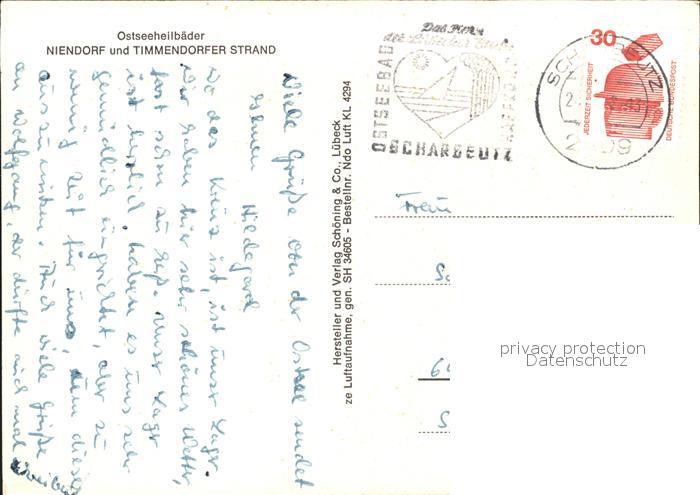 Ostseeheilbäder
NIENDORF und TIMMENDORFER STRAND
Viele Grüße von der Ostsee sendet
Hildegard
wo das Kreuz ist, ist unser Lager.
Wir haben hier sehr schönes Wetter,
fast schon zu heiß. Unser Lager
ist herrlich, haben es uns sehr
gemütlich eingerichtet, aber zu
wenig Zeit für uns, um dieses
auszunutzen. Auch viele Grüße
an Wolfgang, der dürfte auch mal
schreiben
Hersteller und Verlag Schöning & Co., Lübeck
ze Luftaufnahme, gen. SH 34605 - Bestellnr. Ndo Luft KL 4294
Das Herz
der Lübecker Bucht
OSTSEEBAD
HAFFKRUG
SCHARBEUTZ
SCHARBEUTZ
2409
30
JEDERZEIT SICHERHEIT
DEUTSCHE BUNDESPOST
Frau
privacy protection
Datenschutz